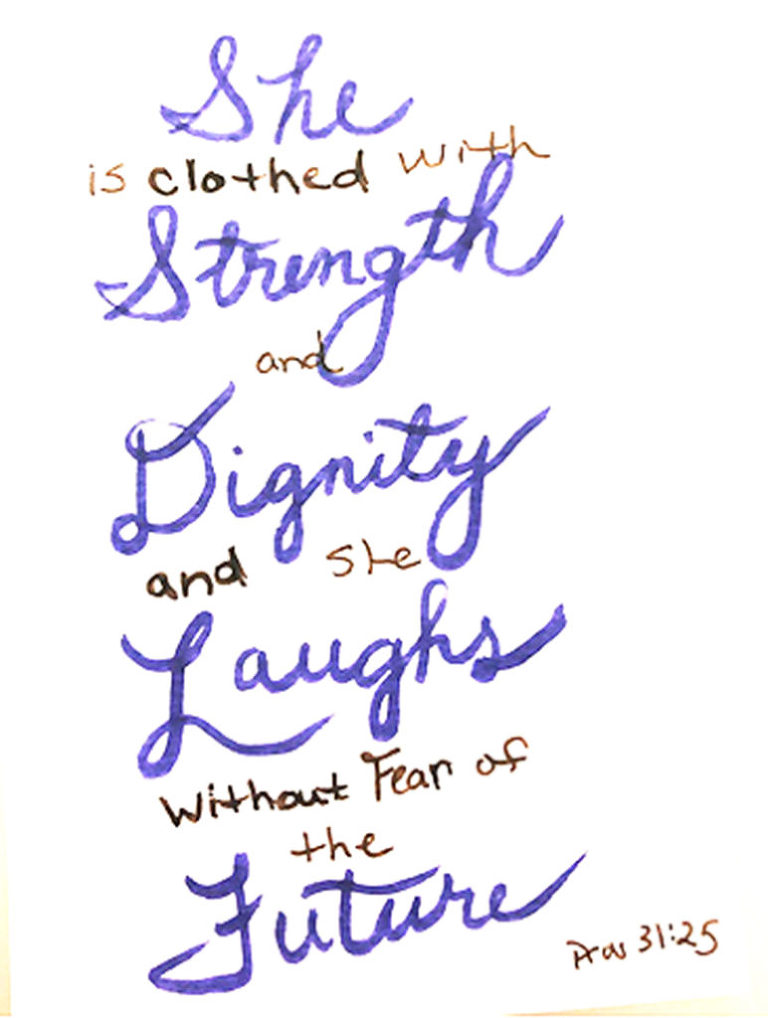 She
is clothed with
Strength
and
Dignity
and she
Laughs
without Fear of
the
Future
Prov 31:25